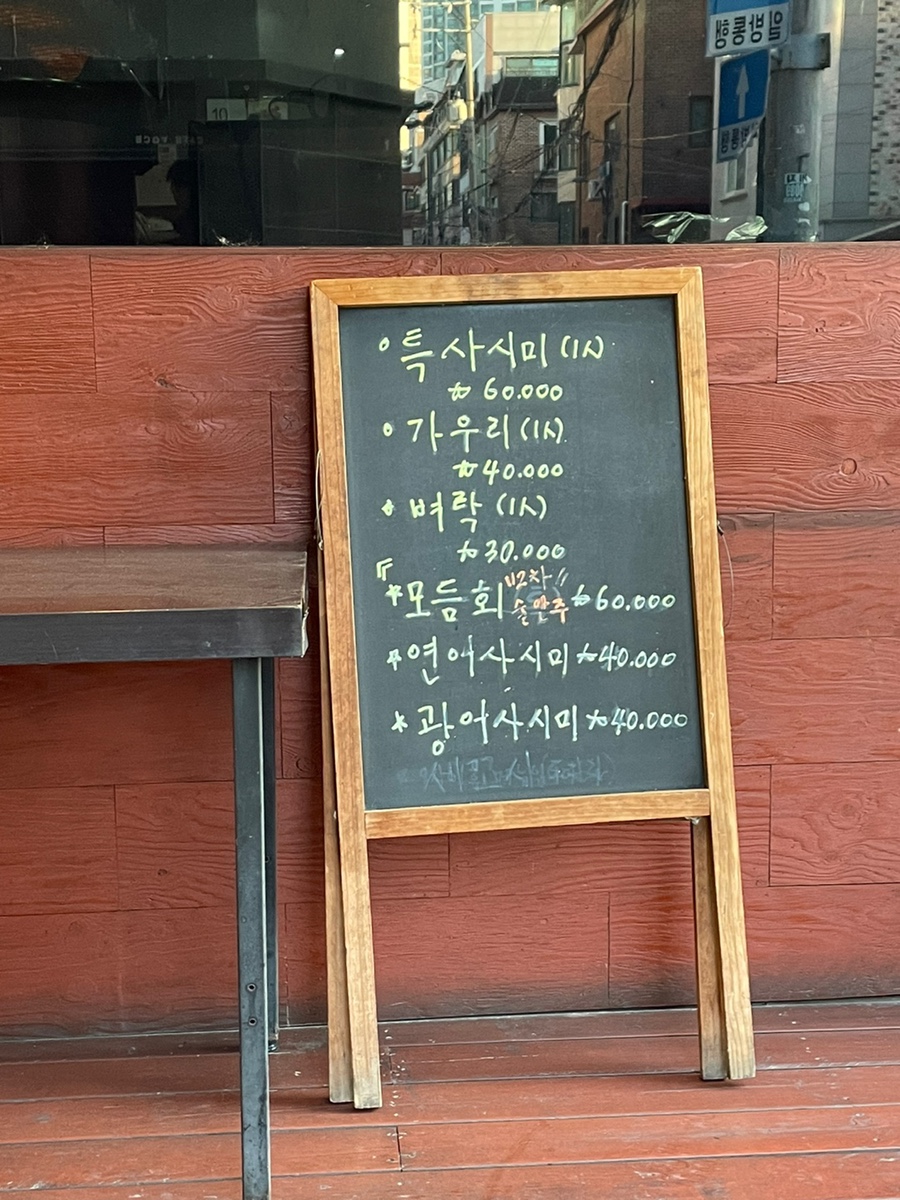 10
일방통행
일방통행
◦ 특사시미 (1人)
₩ 60.000
◦ 가우리 (1人)
₩40.000
◦ 벼락 (1人)
₩30.000
*모듬회 "2차" 술안주 ₩60.000
*연어사시미 ₩40.000
*광어사시미 ₩40.000